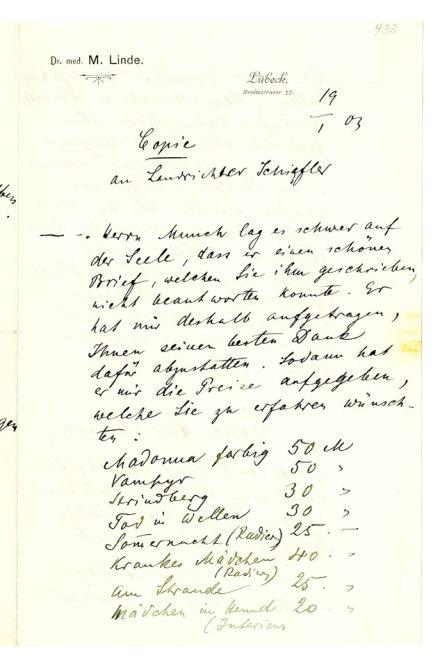 433
Dr. med. M. Linde.
Lübeck,
Breitestrasse 77.
19
I 03
Copie
an Landrichter Schiefler
— - . Herrn Munch lag es schwer auf
der Seele, dass er einen schönen
Brief, welchen Sie ihm geschrieben,
nicht beantworten konnte. Er
hat mir deshalb aufgetragen,
Ihnen seinen besten Dank
dafür abzustatten. Sodann hat
er mir die Preise aufgegeben,
welche Sie zu erfahren wünsch-
ten :
Madonna farbig 50 M
Vampyr 50 "
Strindberg 30 "
Tod in Wellen 30 "
Sommernacht (Radier) 25. —
Krankes Mädchen 40 . "
(Radier)
am Strande 25. "
Mädchen in Hemd 20. "
(Interieur